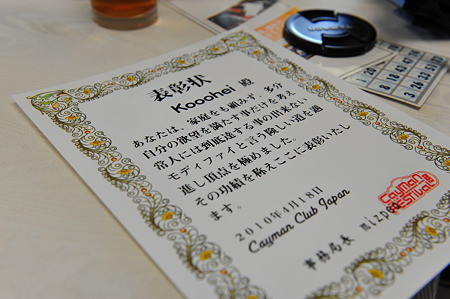 表彰状
Kooohei 殿
あなたは、家庭をも顧みず、多分
自分の欲望を満たす事だけを考え
常人には到底達する事の出来ない
モディファイという険しい道を邁
進し頂点を極めました。
その功績を称えここに表彰いたし
ます。
2010年4月18日
Cayman Club Japan
事務局長 mizp
CAYMAN
FESTIVAL